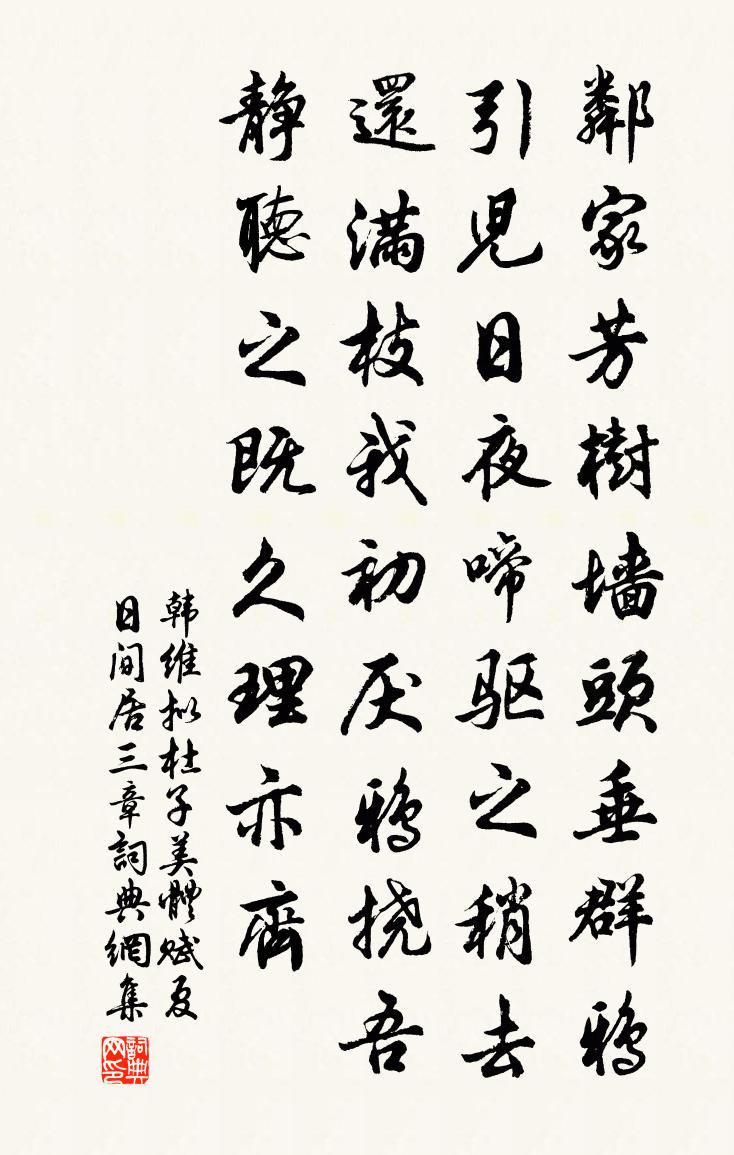 鄰家芳樹墻頭垂群鴉
引児日夜啼驱之稍去
還满枝我初厌鴉挠吾
静聽之既久理亦齊
韩维拟杜子美體赋夏
日间居三章詞典網集
詞典网印